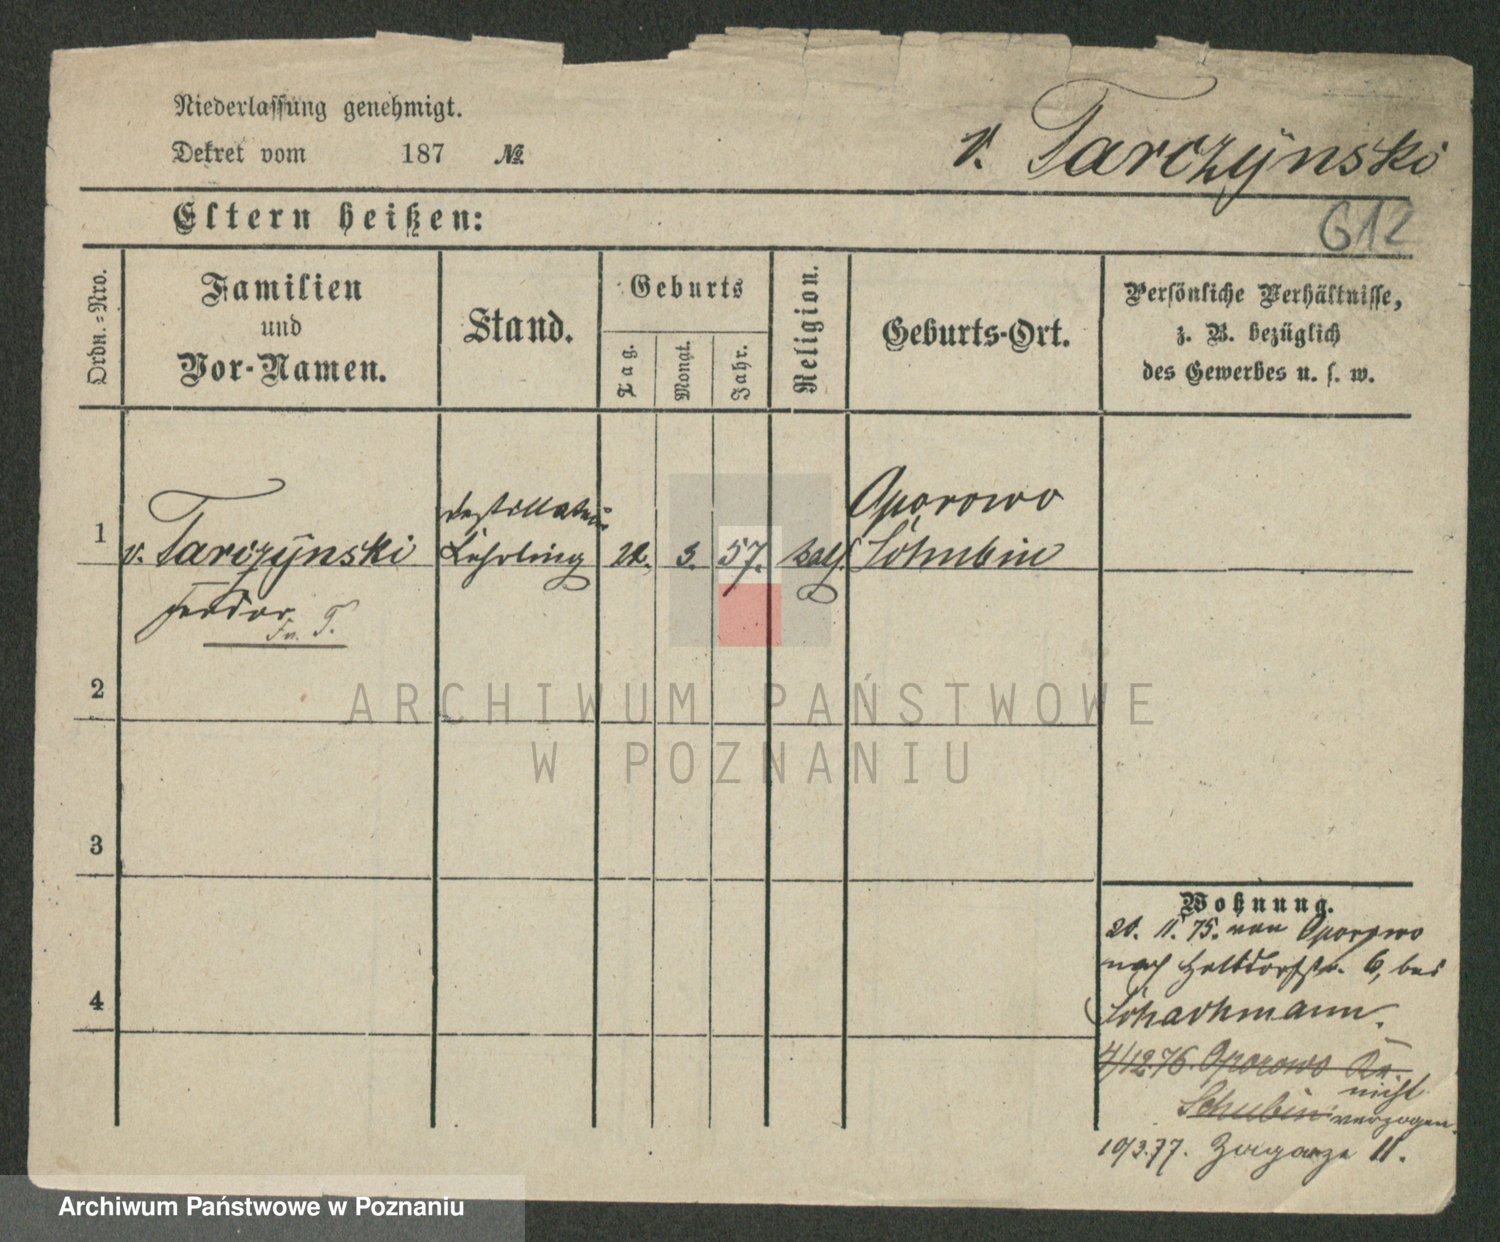 Niederlassung genehmigt.
Dekret vom 187 №
v. Tarczÿnski
G12
Eltern heißen:
Ordn.-Nro.
Familien
und
Vor-Namen.
Stand.
Geburts
Tag.
Monat.
Jahr.
Religion.
Geburts-Ort.
Persönliche Verhältnisse,
z. B. bezüglich
des Gewerbes u. s. w.
1
v. Tarczÿnski
Destillateur
Lehrling
3.
57.
kath.
Oporowo
Schubin
2
3
4
Wohnung.
11. 75. von Oporowo
nach Halbdorfstr. 6, bei
Schachmann.
4/12 76. Oporowo Kr.
Schubin nicht
verzogen.
10/3.77. Zagorze 11.
ARCHIWUM PAŃSTWOWE
W POZNANIU
Archiwum Państwowe w Poznaniu